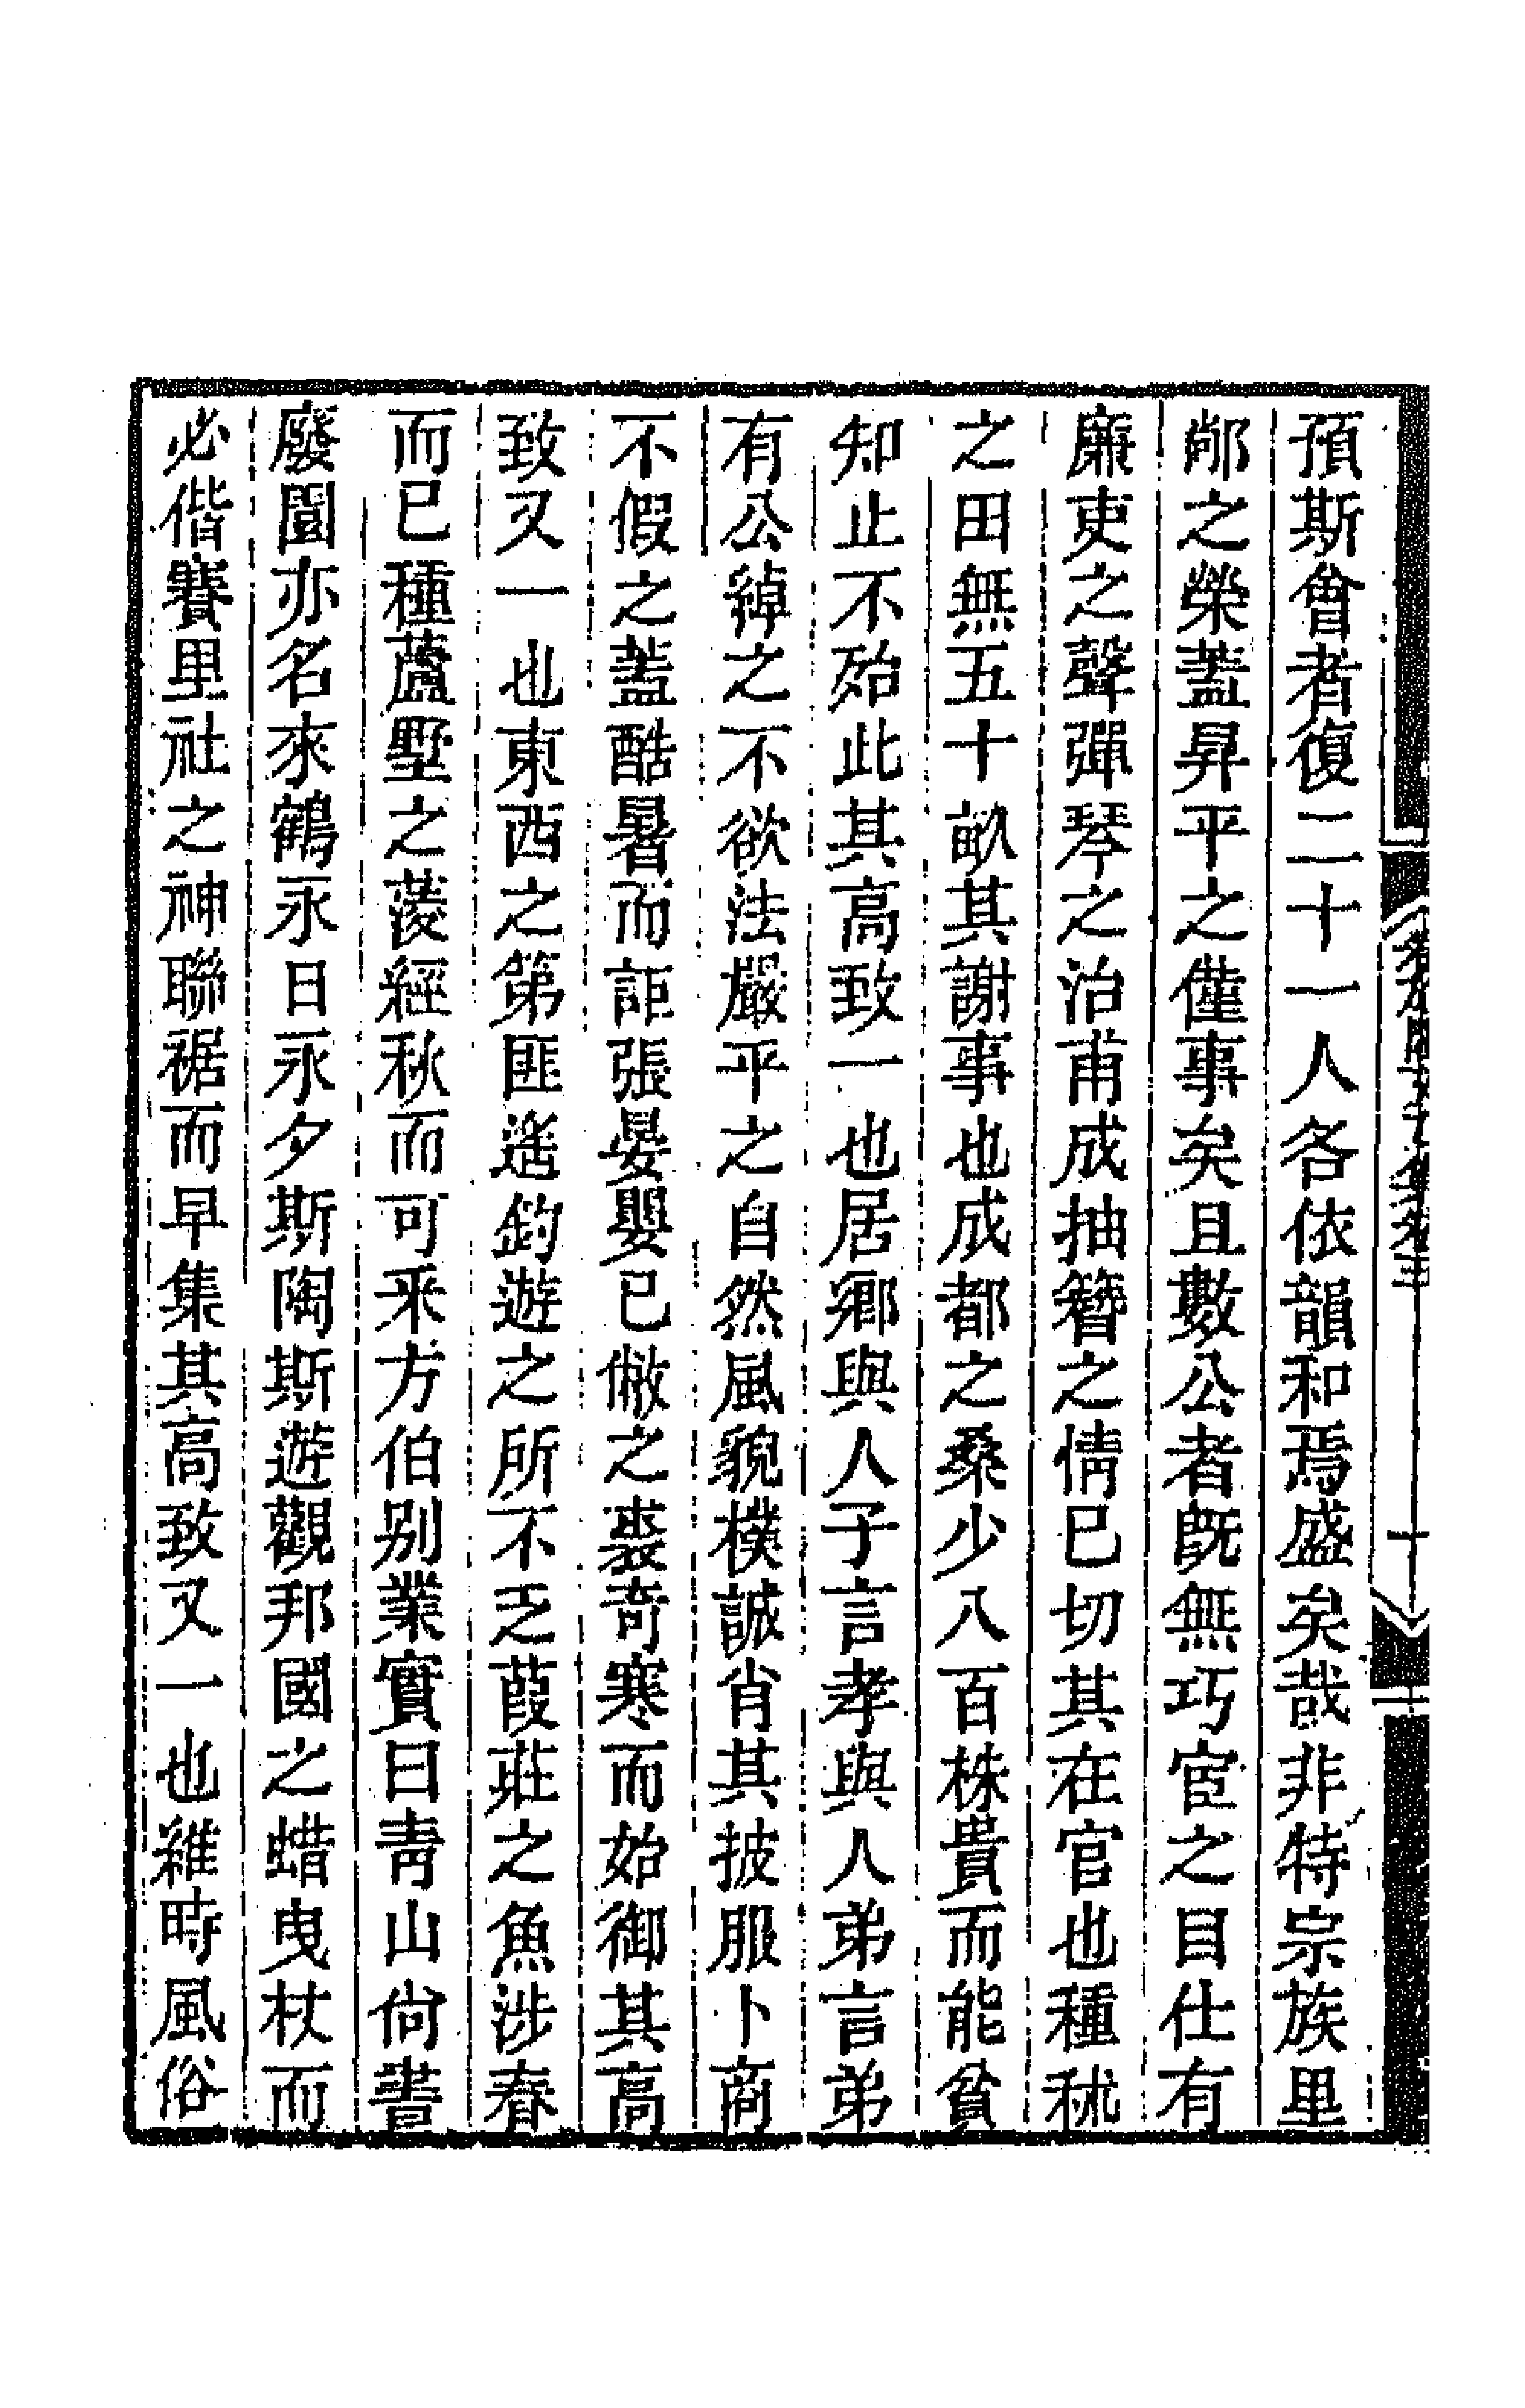 預斯會者復二十一人各依韻和焉盛矣哉非特宗族里
鄉之榮蓋昇平之僅事矣且數公者既無巧宦之目仕有
廉吏之聲彈琴之治甫成抽簪之情已切其在官也種秫
之田無五十畝其謝事也成都之桑少八百株貴而能貧
知止不殆此其高致一也居鄉與人子言孝與人弟言弟
有公綽之不欲法嚴平之自然風貌樸誠肖其披服卜商
不假之蓋酷暑而詎張晏嬰已敝之裘奇寒而始御其高
致又一也東西之第匪遙釣遊之所不乏葭莊之魚涉春
而已種蘆墅之菱經秋而可采方伯別業實曰青山尚書
廢園亦名來鶴永日永夕斯陶斯遊觀邦國之蜡曳杖而
必偕賽里社之神聯裾而早集其高致又一也維時風俗
十